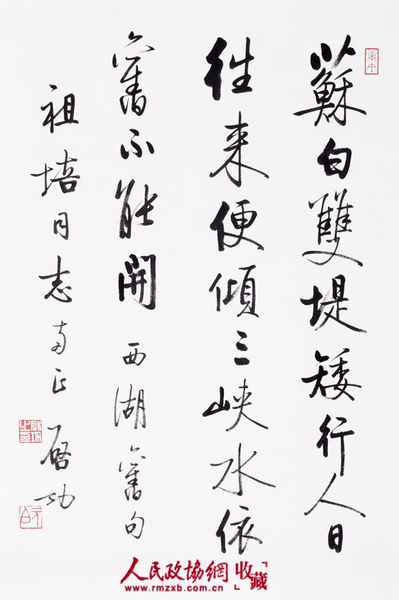 蘇白雙堤矮行人日
往来便傾三峽水依
舊不能開 西湖舊句
祖培同志正 啓功
人民政協網「收藏」
www.rmzxb.com.cn